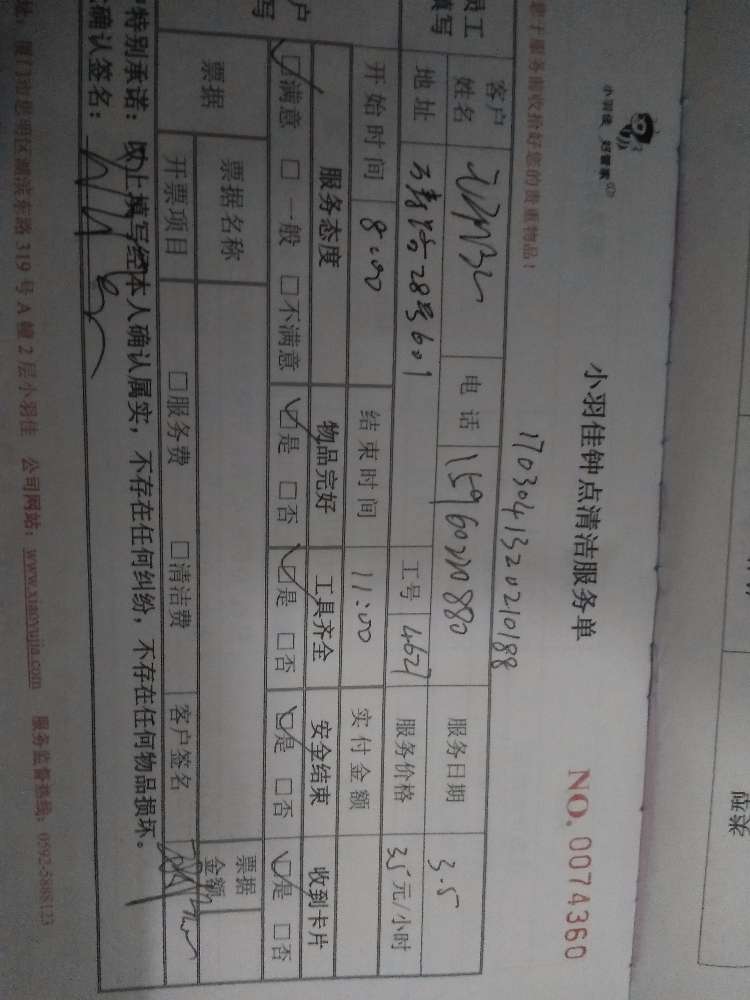 小羽佳 好管家
小羽佳钟点清洁服务单
NO. 0074360
您于服务前收拾好您的贵重物品！
1703041320210188
客户姓名 电话 15960210880 服务日期 3.5
地址 28号601 工号 4627 服务价格 35元/小时
开始时间 8:00 结束时间 11:00 实付金额
员工
填写
服务态度 物品完好 工具齐全 安全结束 收到卡片
☑满意 □一般 □不满意 ☑是 □否 ☑是 □否 ☑是 □否 ☑是 □否
户
写
票据 票据名称 票据金额
开票项目 □服务费 □清洁费 客户签名
特别承诺：以上填写经本人确认属实，不存在任何纠纷，不存在任何物品损坏。
确认签名：
址：厦门市思明区湖滨东路319号A幢2层小羽佳 公司网站：www.xiaoyujia.com 服务监督热线：0592-5888123